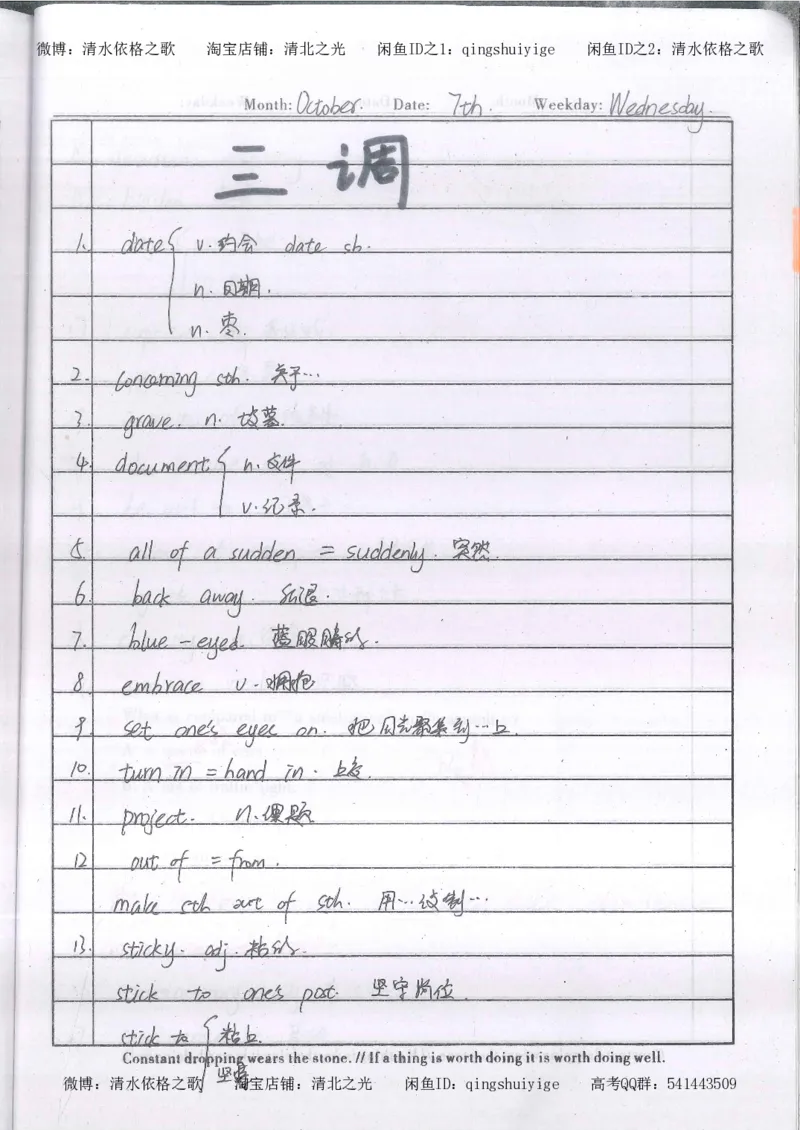 微博：清水依格之歌 淘宝店铺：清北之光 闲鱼ID之1：qingshuiyige 闲鱼ID之2：清水依格之歌
Month: October. Date: 7th. Weekday: Wednesday.
三 调
1. date { v. 约会 date sb.
n. 日期.
n. 枣.
2. concerning sth. 关于…
3. grave. n. 坟墓.
4. document { n. 文件
v. 记录.
5. all of a sudden = suddenly. 突然.
6. back away. 后退.
7. blue-eyed. 蓝眼睛的.
8. embrace v. 拥抱
9. set one's eyes on. 把目光聚集到…上.
10. turn in = hand in. 上交.
11. project. n. 课题
12 out of = from.
make sth out of sth. 用…制…
13. sticky. adj. 粘的.
stick to one's post. 坚守岗位.
stick to { 粘上.
坚
Constant dropping wears the stone. // If a thing is worth doing it is worth doing well.
微博：清水依格之歌 淘宝店铺：清北之光 闲鱼ID：qingshuiyige 高考QQ群：541443509